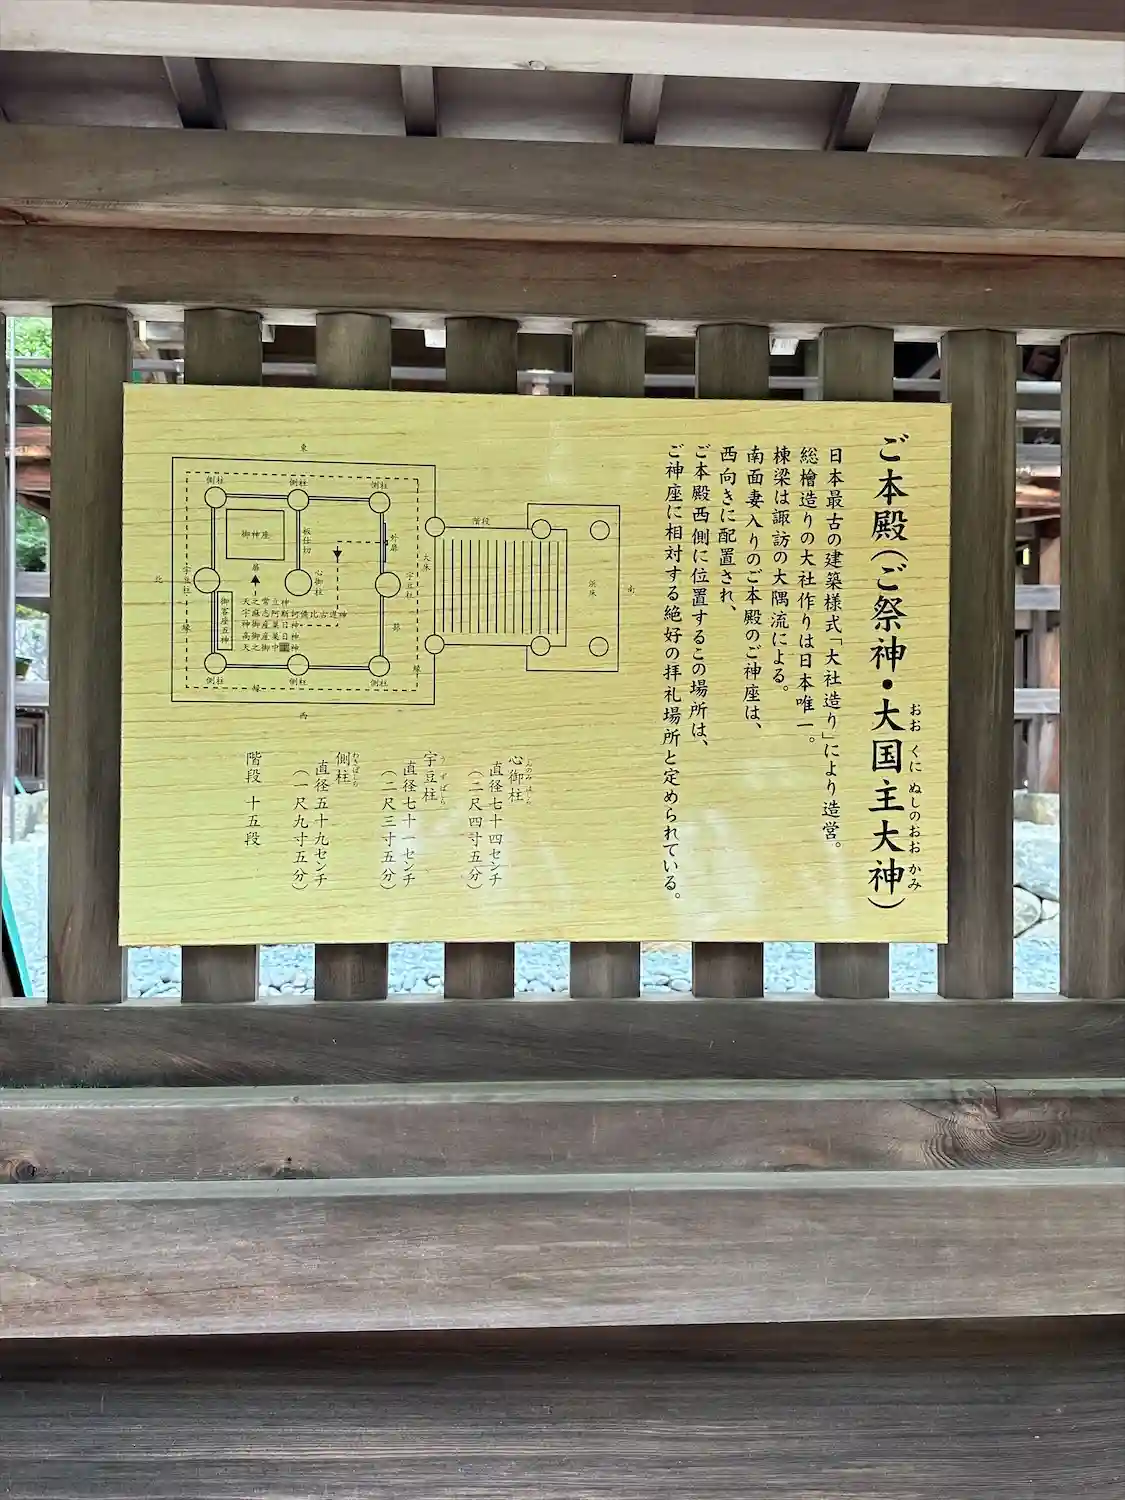 ご本殿（ご祭神・大国主大神）
おお くに ぬしの おお かみ
日本最古の建築様式「大社造り」により造営。
総檜造りの大社作りは日本唯一。
棟梁は諏訪の大隅流による。
南面妻入りのご本殿のご神座は、
西向きに配置され、
ご本殿西側に位置するこの場所は、
ご神座に相対する絶好の拝礼場所と定められている。
東
側柱
側柱
側柱
御神座
板仕切
外扉
階段
大床
浜床
南
北
宇豆柱
扉
心御柱
宇豆柱
御客座五神
天之常立神
宇麻志阿斯訶備比古遅神
神御産巣日神
高御産巣日神
天之御中主神
縁
側柱
側柱
側柱
縁
縁
西
心御柱
しのみはしら
直径七十四センチ
（二尺四寸五分）
宇豆柱
うずばしら
直径七十一センチ
（二尺三寸五分）
側柱
わきばしら
直径五十九センチ
（一尺九寸五分）
階段 十五段